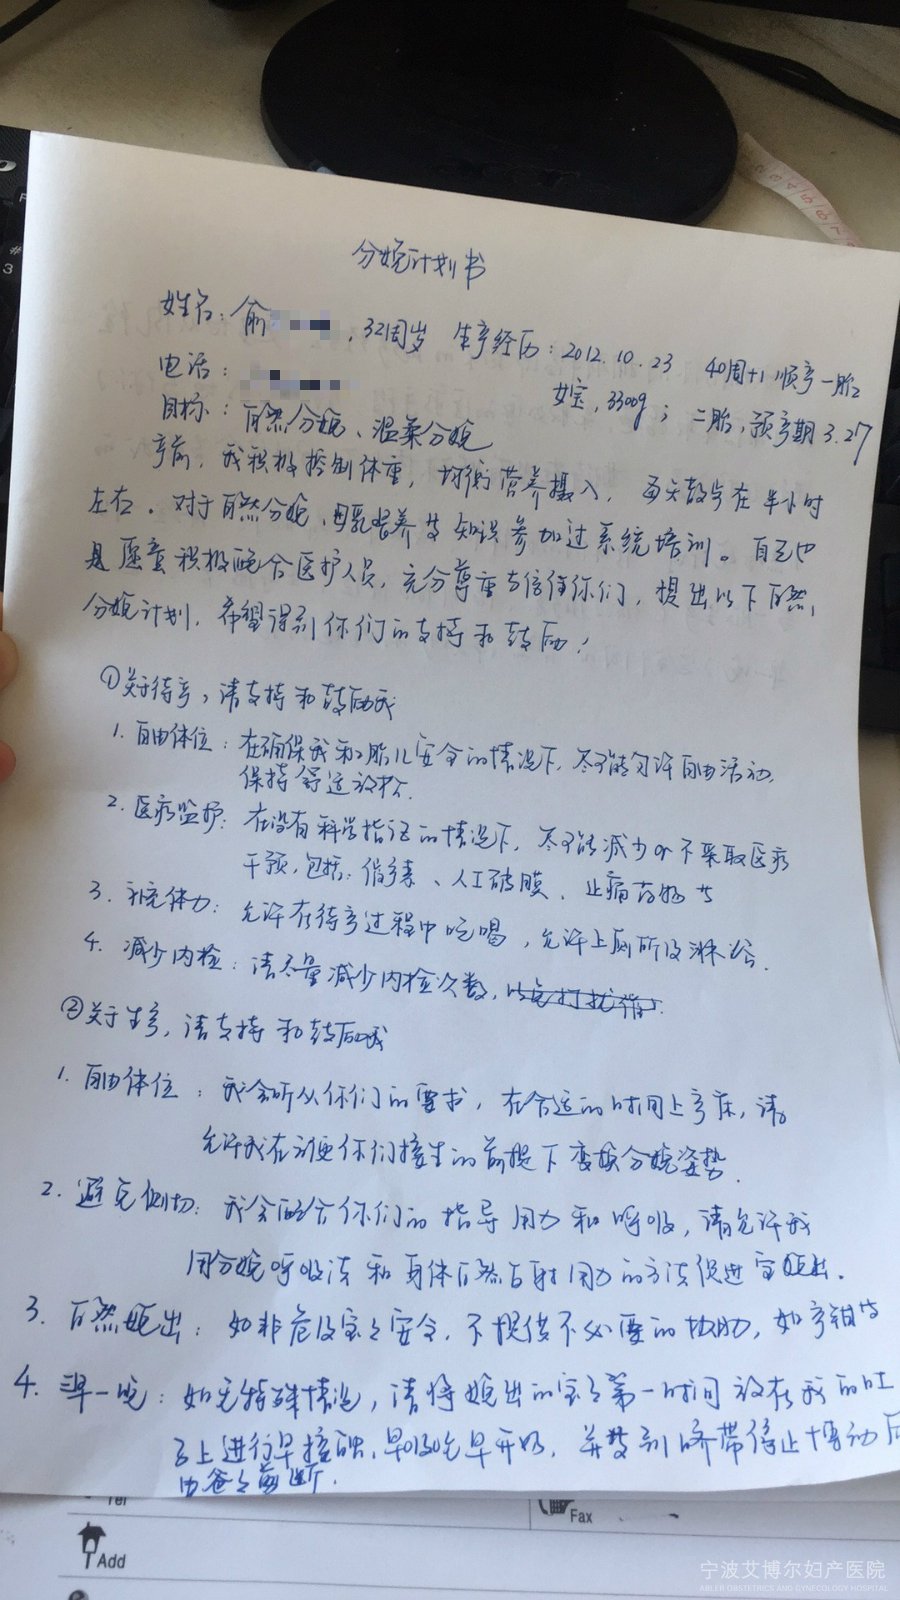 分娩计划书
姓名：俞 ，32周岁 生产经历：2012.10.23 40周+1 顺产一胎
电话： 女宝，3300g；二胎，预产期3.27
目标：自然分娩、温柔分娩
产前，我积极控制体重，均衡营养摄入，每天散步在半小时
左右。对于自然分娩、母乳喂养等知识参加过系统培训。自己也
是愿意积极配合医护人员，充分尊重与信任你们，提出以下自然
分娩计划，希望得到你们的支持和鼓励！
①关于待产，请支持和鼓励我
1. 自由体位：在确保我和胎儿安全的情况下，尽可能允许自由活动，
保持舒适放松.
2. 医疗监护：在没有科学指证的情况下，尽可能减少or不采取医疗
干预，包括：催产素、人工破膜、止痛药物等
3. 补充体力：允许在待产过程中吃喝，允许上厕所及淋浴.
4. 减少内检：请尽量减少内检次数，
②关于生产，请支持和鼓励我
1. 自由体位：我会听从你们的要求，在合适的时间上产床，请
允许我在方便你们接生的前提下变换分娩姿势.
2. 避免侧切：我会配合你们的指导用力和呼吸，请允许我
用分娩呼吸法和身体自然反射用力的方法促进宝宝娩出.
3. 自然娩出：如非危及宝宝安全，不提供不必要的协助，如产钳等
4. 三早一晚：如无特殊情况，请将娩出的宝宝第一时间放在我的肚
子上进行早接触、早吸吮早开奶，并等到脐带停止搏动后
由爸爸剪断.
Tel
Fax
Add
宁波艾博尔妇产医院
ABLER OBSTETRICS AND GYNECOLOGY HOSPITAL